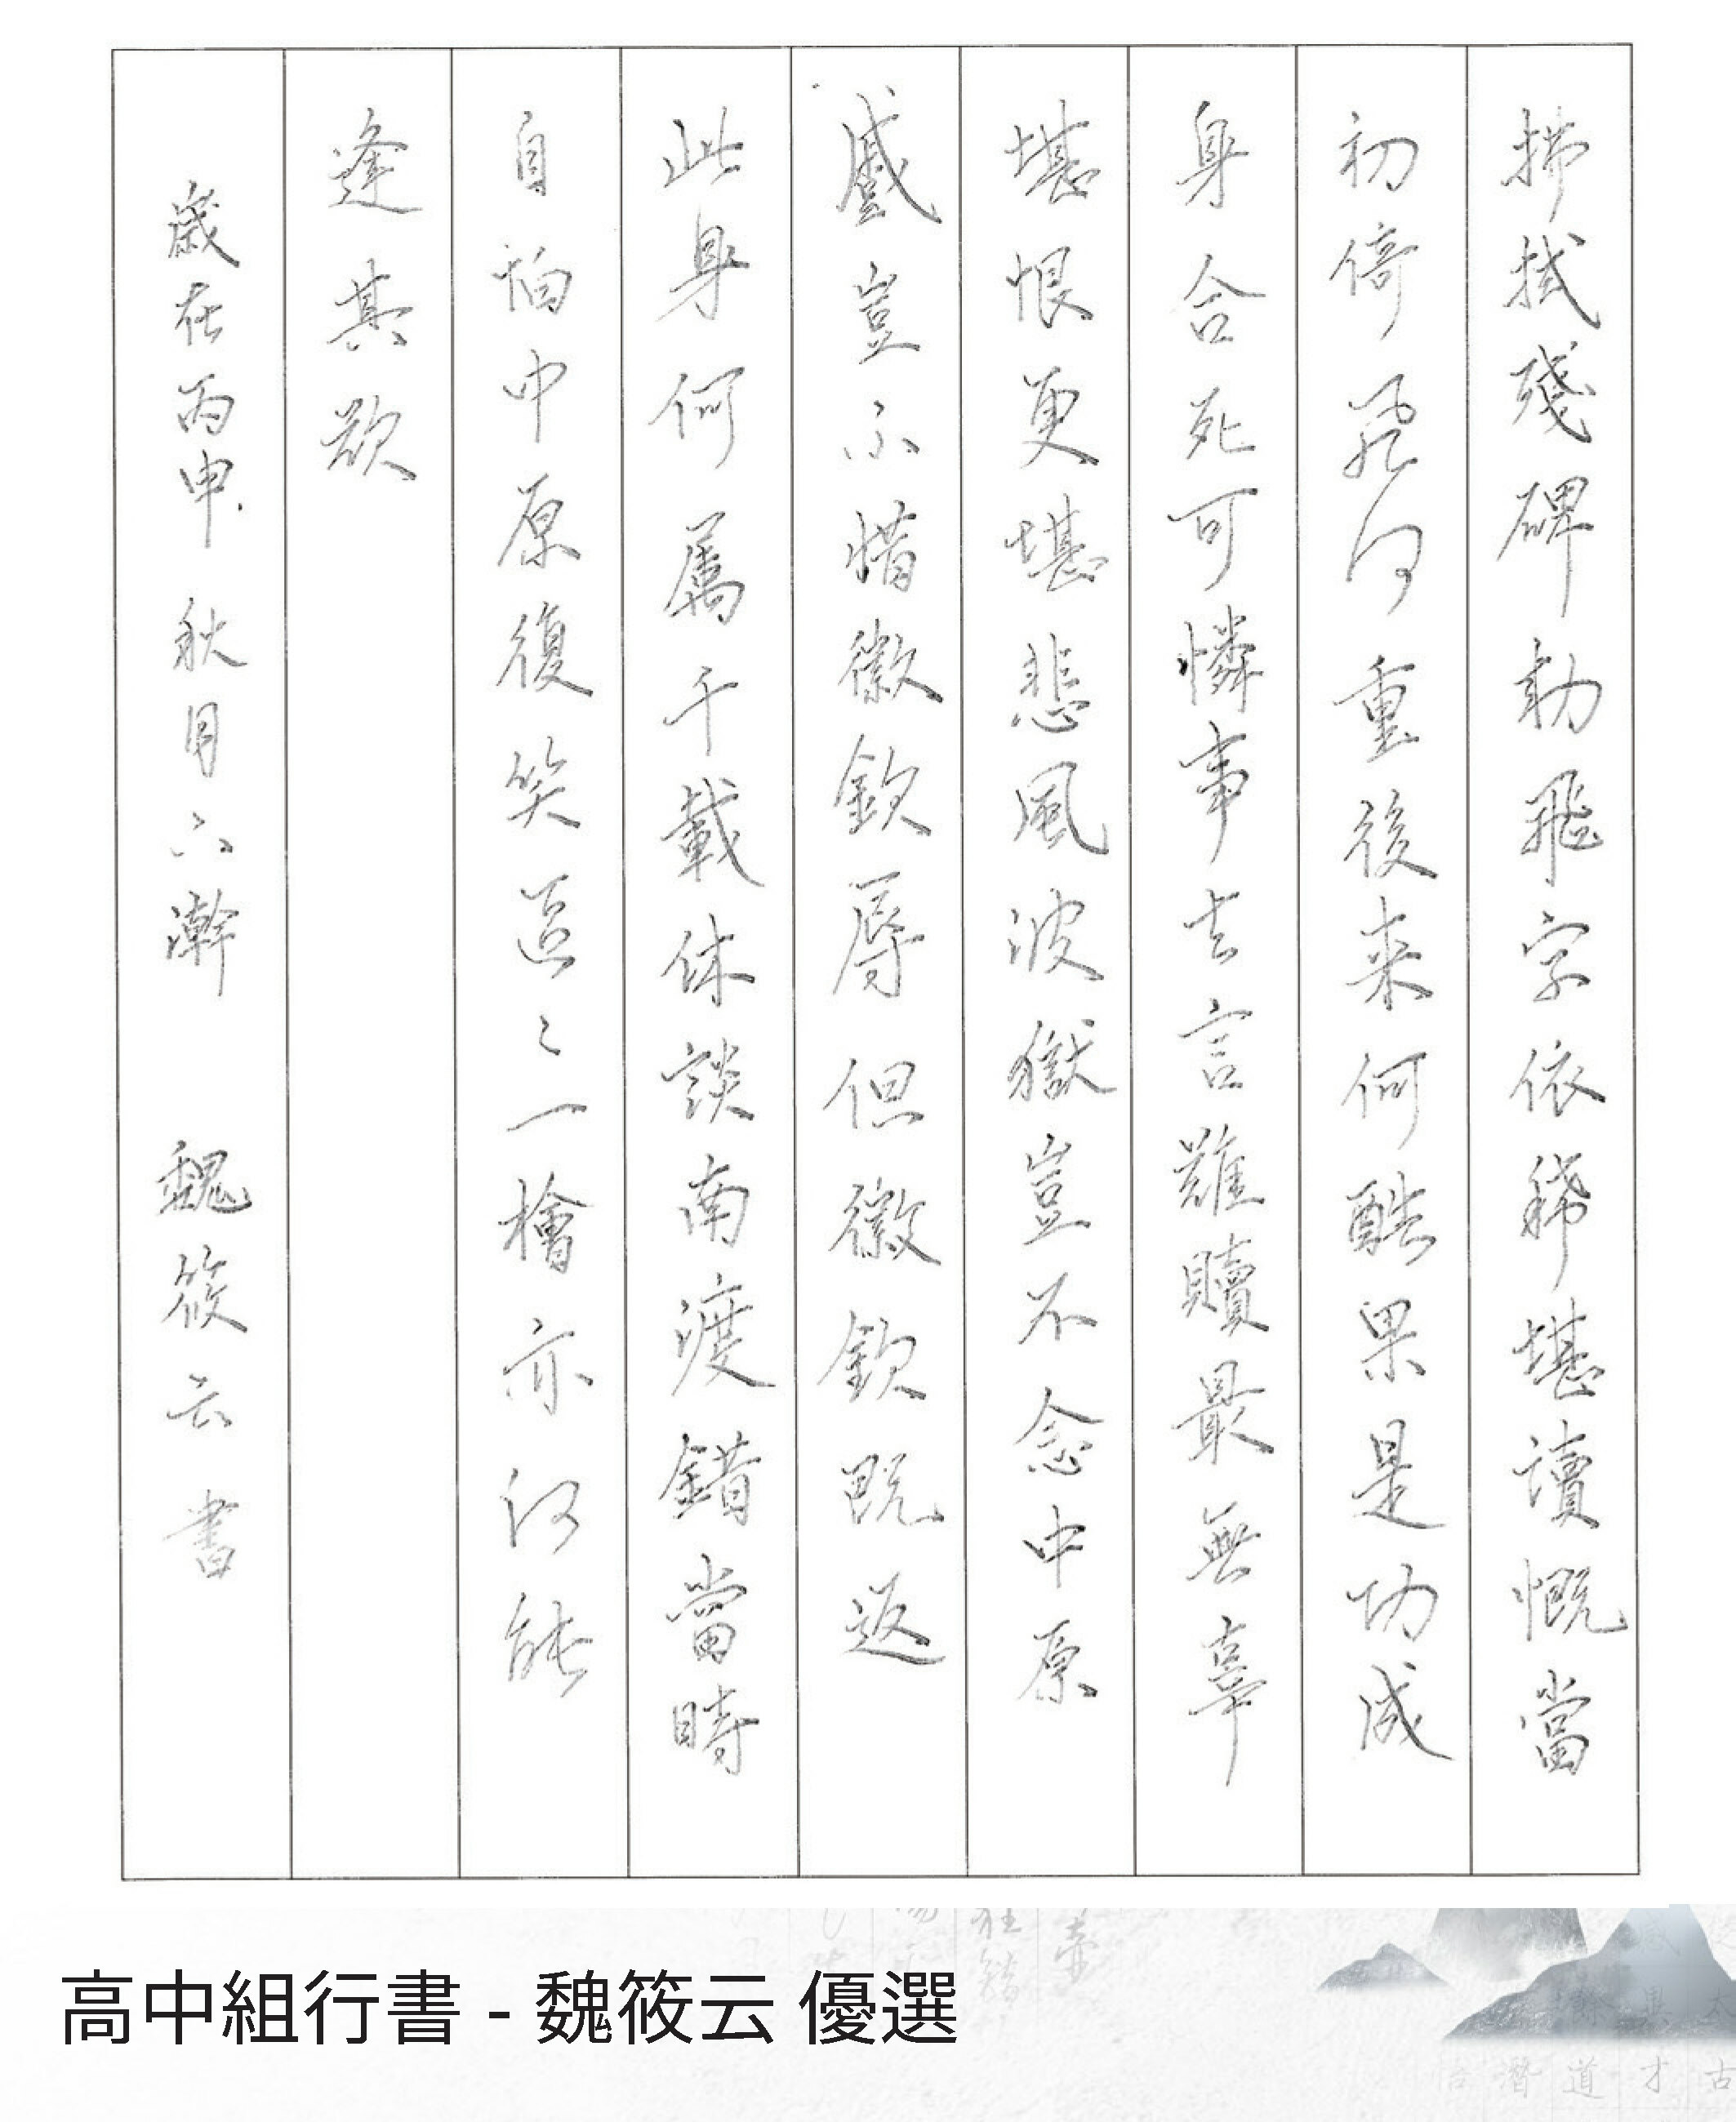 拂拭殘碑勅飛字依稀堪讀慨當
初倚飛何重後来何酷果是功成
身合死可憐事去言難贖最無辜
堪恨更堪悲風波獄豈不念中原
蹙豈不惜徽欽辱但徽欽既返
此身何屬千載休談南渡錯當時
自怕中原復笑區〻一檜亦何能
逢其欲
歲在丙申秋月六瀚 魏筱云書
高中組行書 - 魏筱云 優選